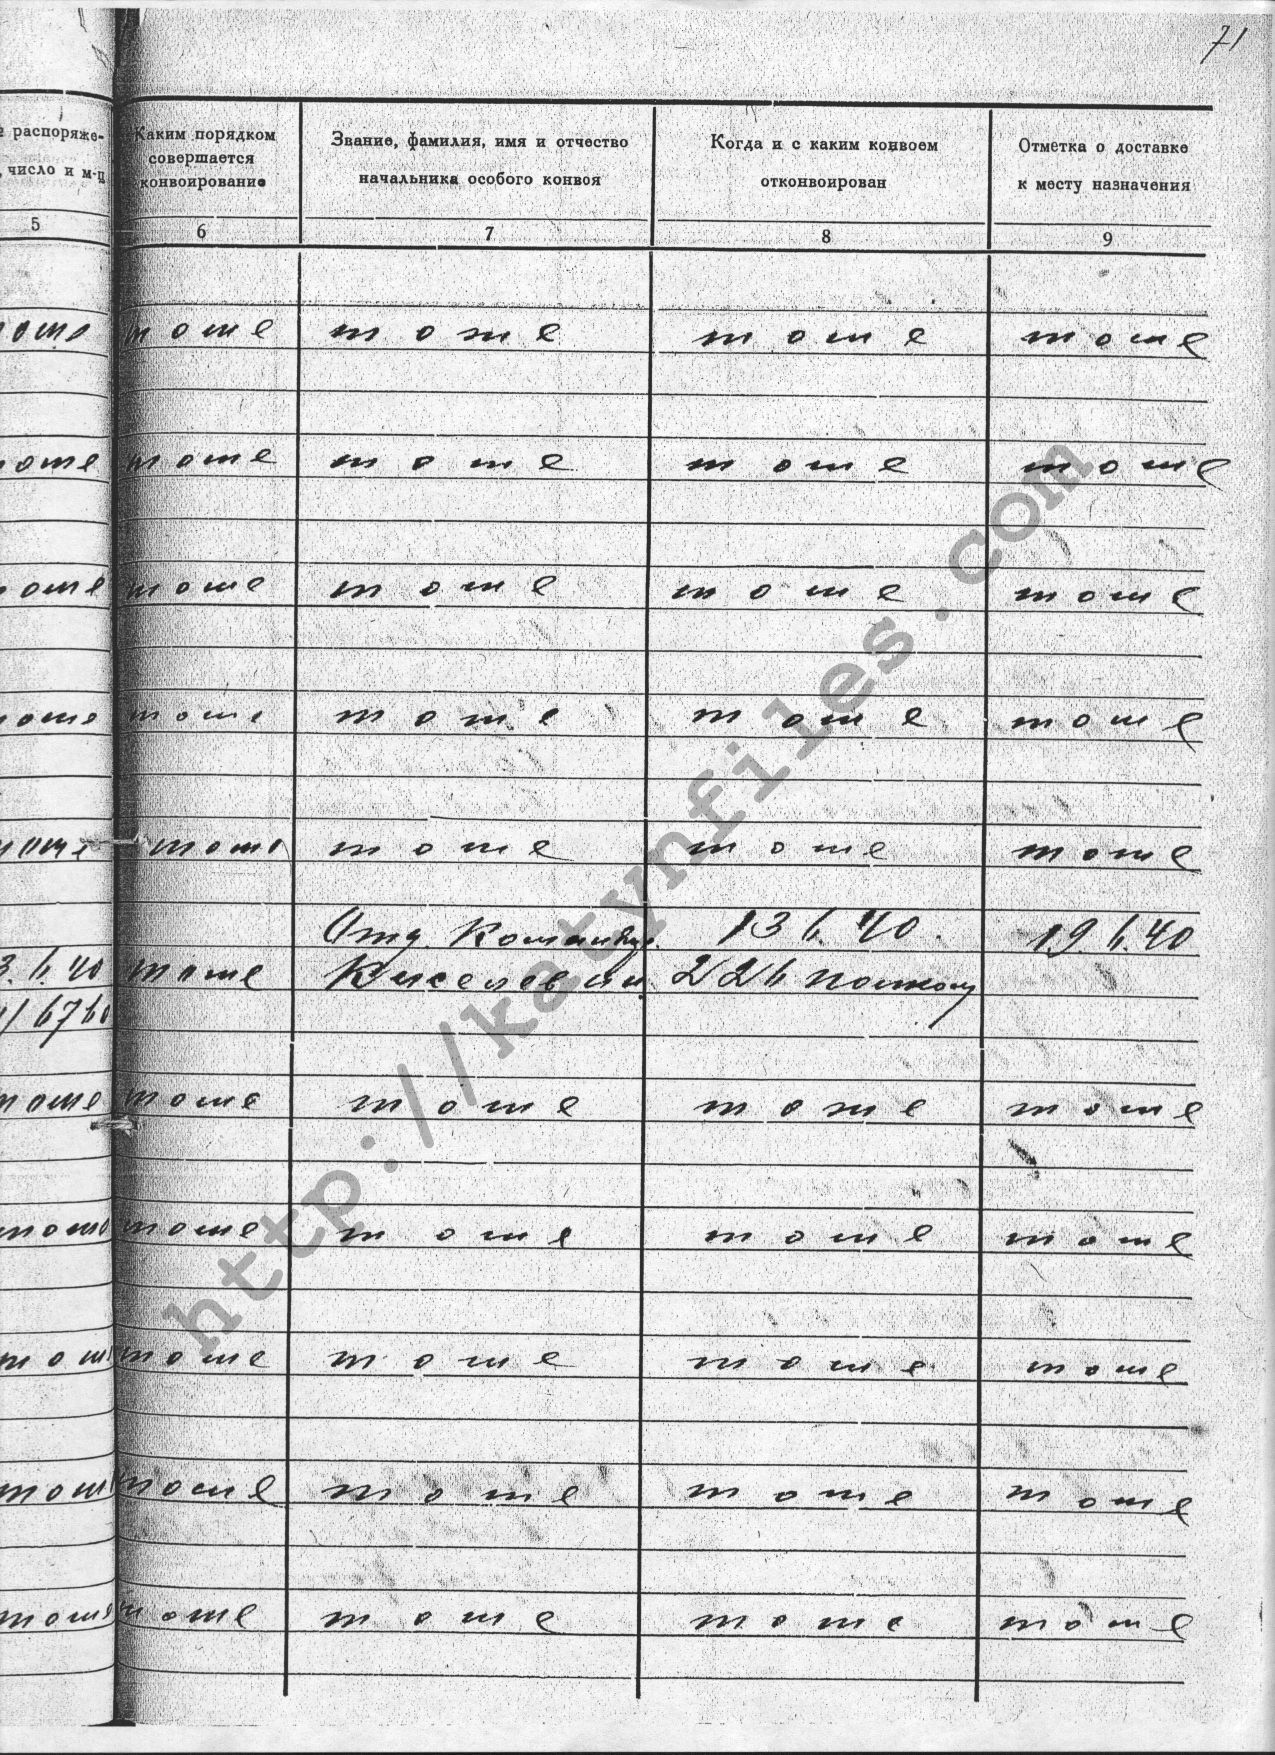 71
е распоряже-
, число и м-ц
Каким порядком
совершается
конвоирование
Звание, фамилия, имя и отчество
начальника особого конвоя
Когда и с каким конвоем
отконвоирован
Отметка о доставке
к месту назначения
5 6 7 8 9
тоже тоже тоже тоже тоже
тоже тоже тоже тоже тоже
тоже тоже тоже тоже тоже
тоже тоже тоже тоже тоже
тоже тоже тоже тоже тоже
Отд. Команд. 13 6. 40. 19 6. 40
3. 6. 40 тоже 226 полком
тоже тоже тоже тоже тоже
тоже тоже тоже тоже тоже
тоже тоже тоже тоже тоже
тоже тоже тоже тоже тоже
тоже тоже тоже тоже тоже
http://katynfiles.com